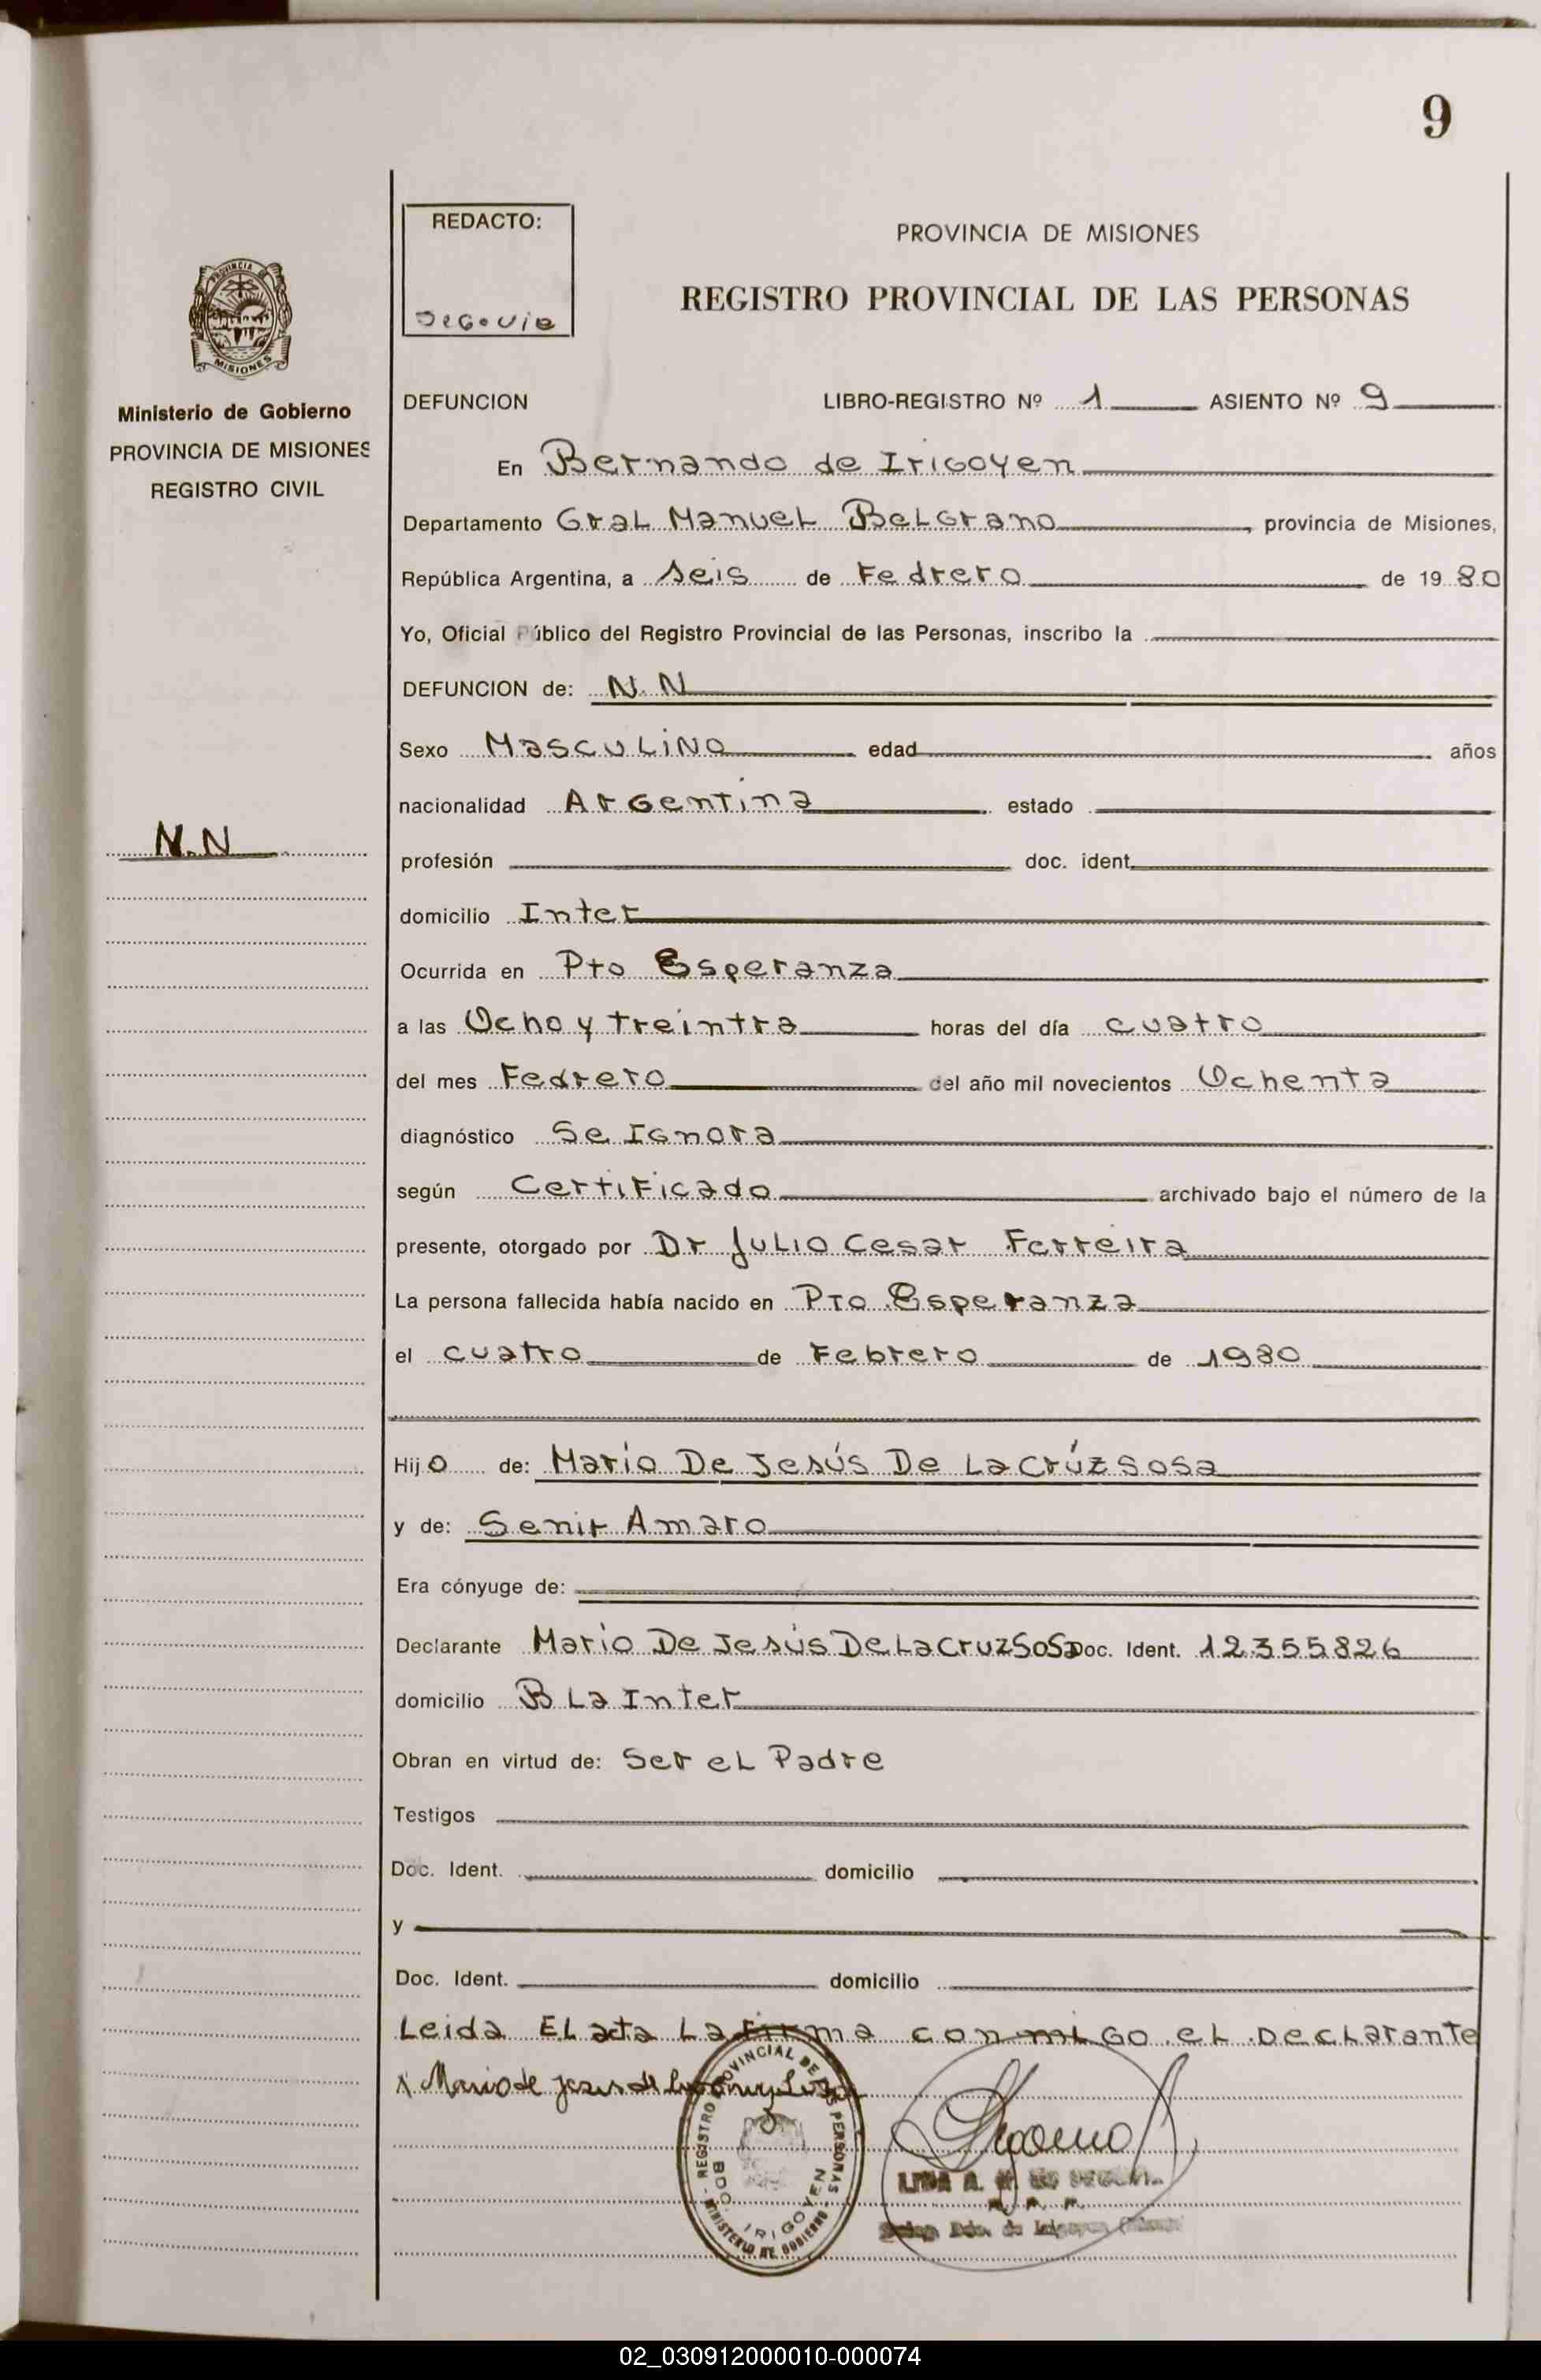 9
REDACTO:
Segovia
PROVINCIA DE MISIONES
REGISTRO PROVINCIAL DE LAS PERSONAS
PROVINCIA DE
MISIONES
Ministerio de Gobierno
PROVINCIA DE MISIONES
REGISTRO CIVIL
DEFUNCION LIBRO-REGISTRO Nº 1 ASIENTO Nº 9
En Bernando de Irigoyen
Departamento Gral Manuel Belgrano, provincia de Misiones,
República Argentina, a seis de Fedrero de 19 80
Yo, Oficial Público del Registro Provincial de las Personas, inscribo la
DEFUNCION de: N.N
Sexo Masculino edad años
nacionalidad Argentina estado
N.N
profesión doc. ident.
domicilio Inter
Ocurrida en Pto Esperanza
a las Ocho y treintra horas del día cuatro
del mes Fedrero del año mil novecientos Ochenta
diagnóstico Se Ignora
según Certificado archivado bajo el número de la
presente, otorgado por Dr Julio Cesar Ferreira
La persona fallecida había nacido en Pto Esperanza
el cuatro de Febrero de 1980
Hijo de: Mario De Jesús De La Crúz Sosa
y de: Senir Amaro
Era cónyuge de:
Declarante Mario De Jesús De La Cruz Sosa Doc. Ident. 12355826
domicilio B La Inter
Obran en virtud de: Ser el Padre
Testigos
Doc. Ident. domicilio
y
Doc. Ident. domicilio
Leida El acta La firma conmigo el Declarante
x Mario de jesus de la cruz Sosa
REGISTRO PROVINCIAL DE LAS PERSONAS
BDO. IRIGOYEN
MINISTERIO DE GOBIERNO
02_030912000010-000074